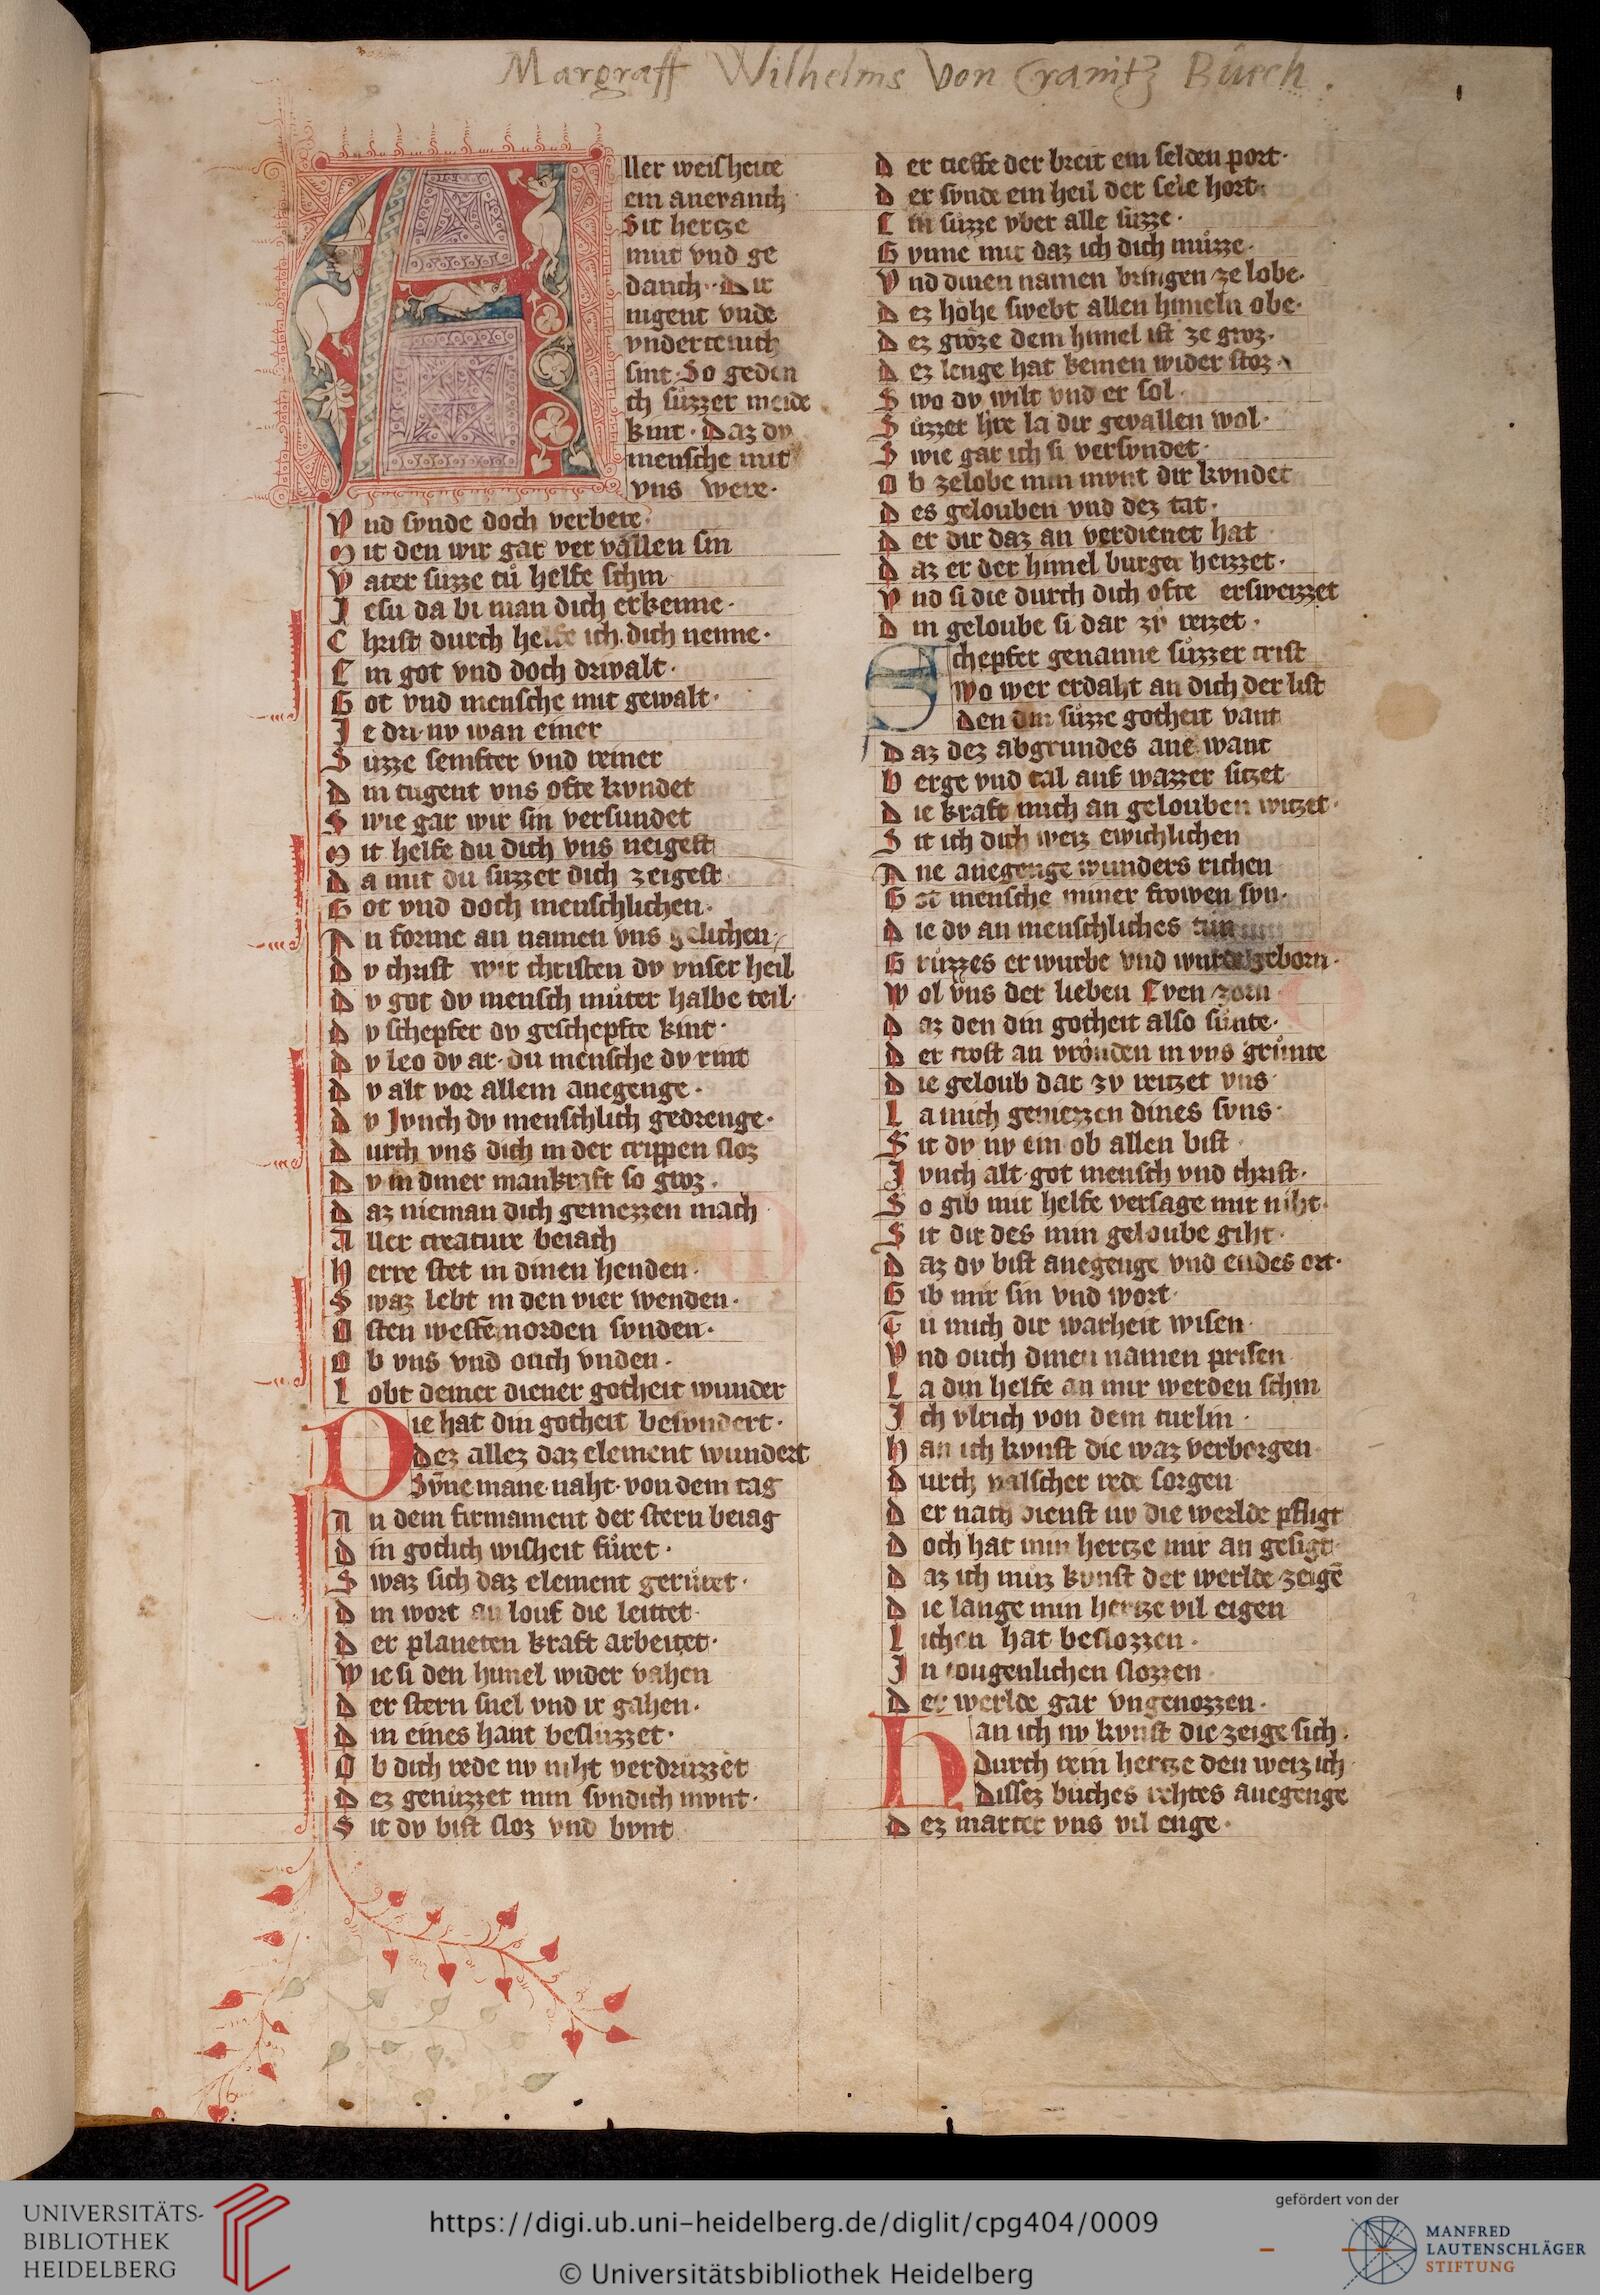 Margraff Wilhelms von Cranitz Buech.
Aller weisheite
ein anevanch
Sit hertze
mut vnd ge
danch· Dir
tugent vnde
vndertenich
sint· So geden
ch suzzer meide
kint· Daz dv
mensche mit
vns were·
Vnd svnde doch verbere·
Mit den wir gar ver vallen sin
Vater suzze tů helfe schin
Jesu da bi man dich erkenne·
Christ durch helfe ich dich nenne·
Ein got vnd doch drivalt·
Got vnd mensche mit gewalt·
Je dri· nv wan einer
Suzze semfter vnd reiner
Din tugent vns ofte kvndet
Swie gar wir sin versundet
Mit helfe du dich vns neigest
Da mit du suzzer dich zeigest
Got vnd doch menschlichen·
An forme an namen vns gelichen·
Dv christ wir christen dv vnser heil
Dv got dv mensch můter halbe teil·
Dv schepfer dv geschepfte kint·
Dv leo dv ar· du mensche dv rint
Dv alt vor allem anegenge·
Dv Jvnch dv menschlich gedrenge·
Durch vns dich in der crippen sloz
Dv in diner mankraft so groz·
Daz nieman dich gemezzen mach
Aller creature beiach
Herre stet in dinen henden·
Swaz lebt in den vier wenden·
Osten westen norden svnden·
Ob vns vnd ouch vnden·
Lobt deiner diener gotheit wunder
Die hat din gotheit besvndert·
Dez allez daz element wundert
Svne mane· naht· von dem tag
An dem firmament der stern beiag
Din gotlich wisheit fůret·
Swaz sich daz element gerůret·
Din wort an louf die leittet·
Der planeten kraft arbeitet·
Wie si den himel wider vahen
Der stern snel vnd ir gahen·
Din eines hant besluzzet·
Ob dich rede nv niht verdruzzet
Dez genuzzet min svndich mvnt·
Sit dv bist sloz vnd bvnt
Der tieffe der breit ein selden port·
Der svnde ein heil der sele hort·
Ein suzze vber alle suzze·
Gvnne mir daz ich dich můzze·
Vnd dinen namen bringen ze lobe·
Dez hohe swebt allen himeln obe·
Dez groze dem himel ist ze groz·
Dez lenge hat keinen wider stoz·
Swo dv wilt vnd er sol
Suzzer hre la dir gevallen wol·
Swie gar ich si versvndet·
Ob zelobe min mvnt dir kvndet
Des gelouben vnd dez tat·
Der dir daz an verdienet hat
Daz er der himel burger heizzet·
Vnd si die durch dich ofte ersweizzet
Din geloube si dar zv reizet·
Schepfer genanne sůzzer crist
Wo wer erdaht an dich der list
Den din sůzze gotheit vant
Daz dez abgrundes ane want
Berge vnd tal auf wazzer sitzet
Die kraft mich an gelouben witzet·
Sit ich dich weiz ewichlichen
Ane anegenge wunders richen
Got mensche miner frowen svn·
Die dv an menschliches
Gruzzes erwurbe vnd wurde geborn·
Wol vns der lieben Even zorn
Daz den din gotheit also sůnte·
Der trost an vrôuden in vns grůnte
Die geloub dar zv reitzet vns·
La mich geniezzen dines svns·
Sit dv nv ein ob allen bist·
Jvnch alt· got mensch vnd christ·
So gib mir helfe versage mir niht·
Sit dir des min geloube giht·
Daz dv bist anegenge vnd endes ort·
Gib mir sin vnd wort·
Tu mich dir warheit wisen·
Vnd ouch dinen namen prisen
La din helfe an mir werden schin
Jch vlrich von dem turlin·
Han ich kvnst die waz verborgen·
Durch valscher rede sorgen
Der nach dienst nv die werlde pfligt
Doch hat min hertze mir an gesigt
Daz ich můz kvnst der werlde zeigē
Die lange min hertze vil eigen
Lichen hat beslozzen·
Jn tougenlichen slozzen
Der werlde gar vngenozzen·
Han ich nv kvnst die zeige sich·
Durch rein hertze den weiz ich·
Dissez buches rehtes anegenge
Dez marter vns vil enge·
UNIVERSITÄTS-
BIBLIOTHEK
HEIDELBERG
https://digi.ub.uni-heidelberg.de/diglit/cpg404/0009
© Universitätsbibliothek Heidelberg
gefördert von der
MANFRED
LAUTENSCHLÄGER
STIFTUNG